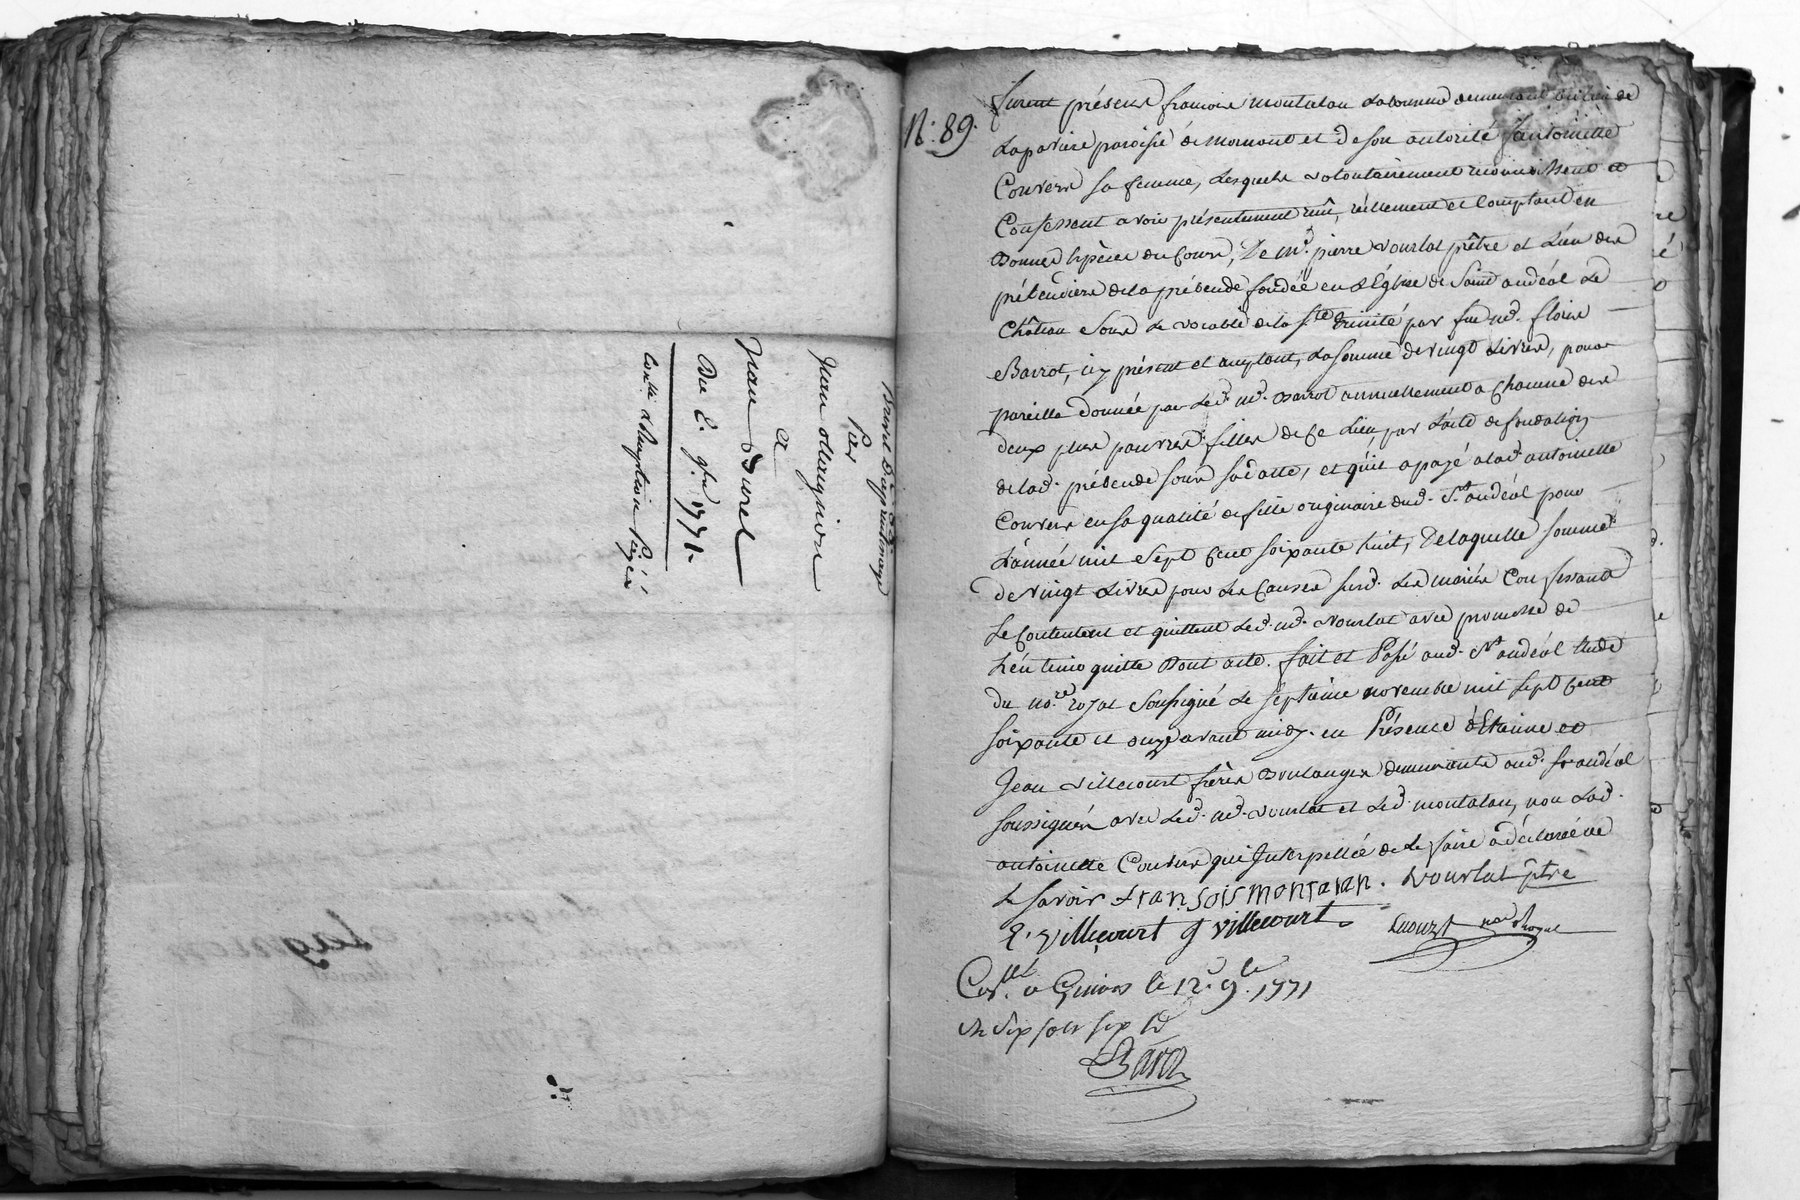 Brevet D'aprentissage
Par
Jean olagnion
a
Jean Burel
Du 8. 9bre 1771
N.° 89.
furent présens françois montalan Laboureur demeurant au lieu de
paroisse de mornant et de son autorité antoinette
Couvers sa femme, Lesquels volontairement reconnoissent et
Confessent avoir présentement reçû, réellement et Comptant en
Bonnes Espèces du Cours, De mr. pierre vourlat prêtre et L'un des
prébendiers de la prébende fondée en L'Eglise de Saint andéol Le
Château Sous Le vocable de la Ste. trinité par feu mr. floris
Barrot, icy présent et acceptant, La somme de vingt Livres, pour
pareille donnée par Led. mr. Barrot annuellement a Chacune des
deux plus pauvres filles de Ce Lieu, par L'acte de fondation
de lad. prébende sous sa datte, et qu'il a payé a lad. antoinette
Couvers en sa qualité de fille originaire dud. St. andéol pour
L'année mil Sept Cent soixante huit, De laquelle somme
de vingt Livres pour Les Causes susd. Les mariés Confessants
Se Contentent et quittent Led. mr. Vourlat avec promesse de
L'en tenir quitte Dont acte. fait et Passé aud. St. andéol Etude
du nore. royal Soussigné Le septième novembre mil sept Cent
soixante et onze avant midy. en Présence d'Etienne et
Jean villecourt frères Boulangers demeurants aud. St. andéol
soussignés avec Led. mr. vourlat et Led. montalan, non Lad.
antoinette Couvers qui Interpellée de Le faire a déclaré ne
Le savoir fransois montalan. Vourlat ptre
E. villecourt J villecourt
Conllé. a Givors le 12. 9e. 1771
Six sols six d